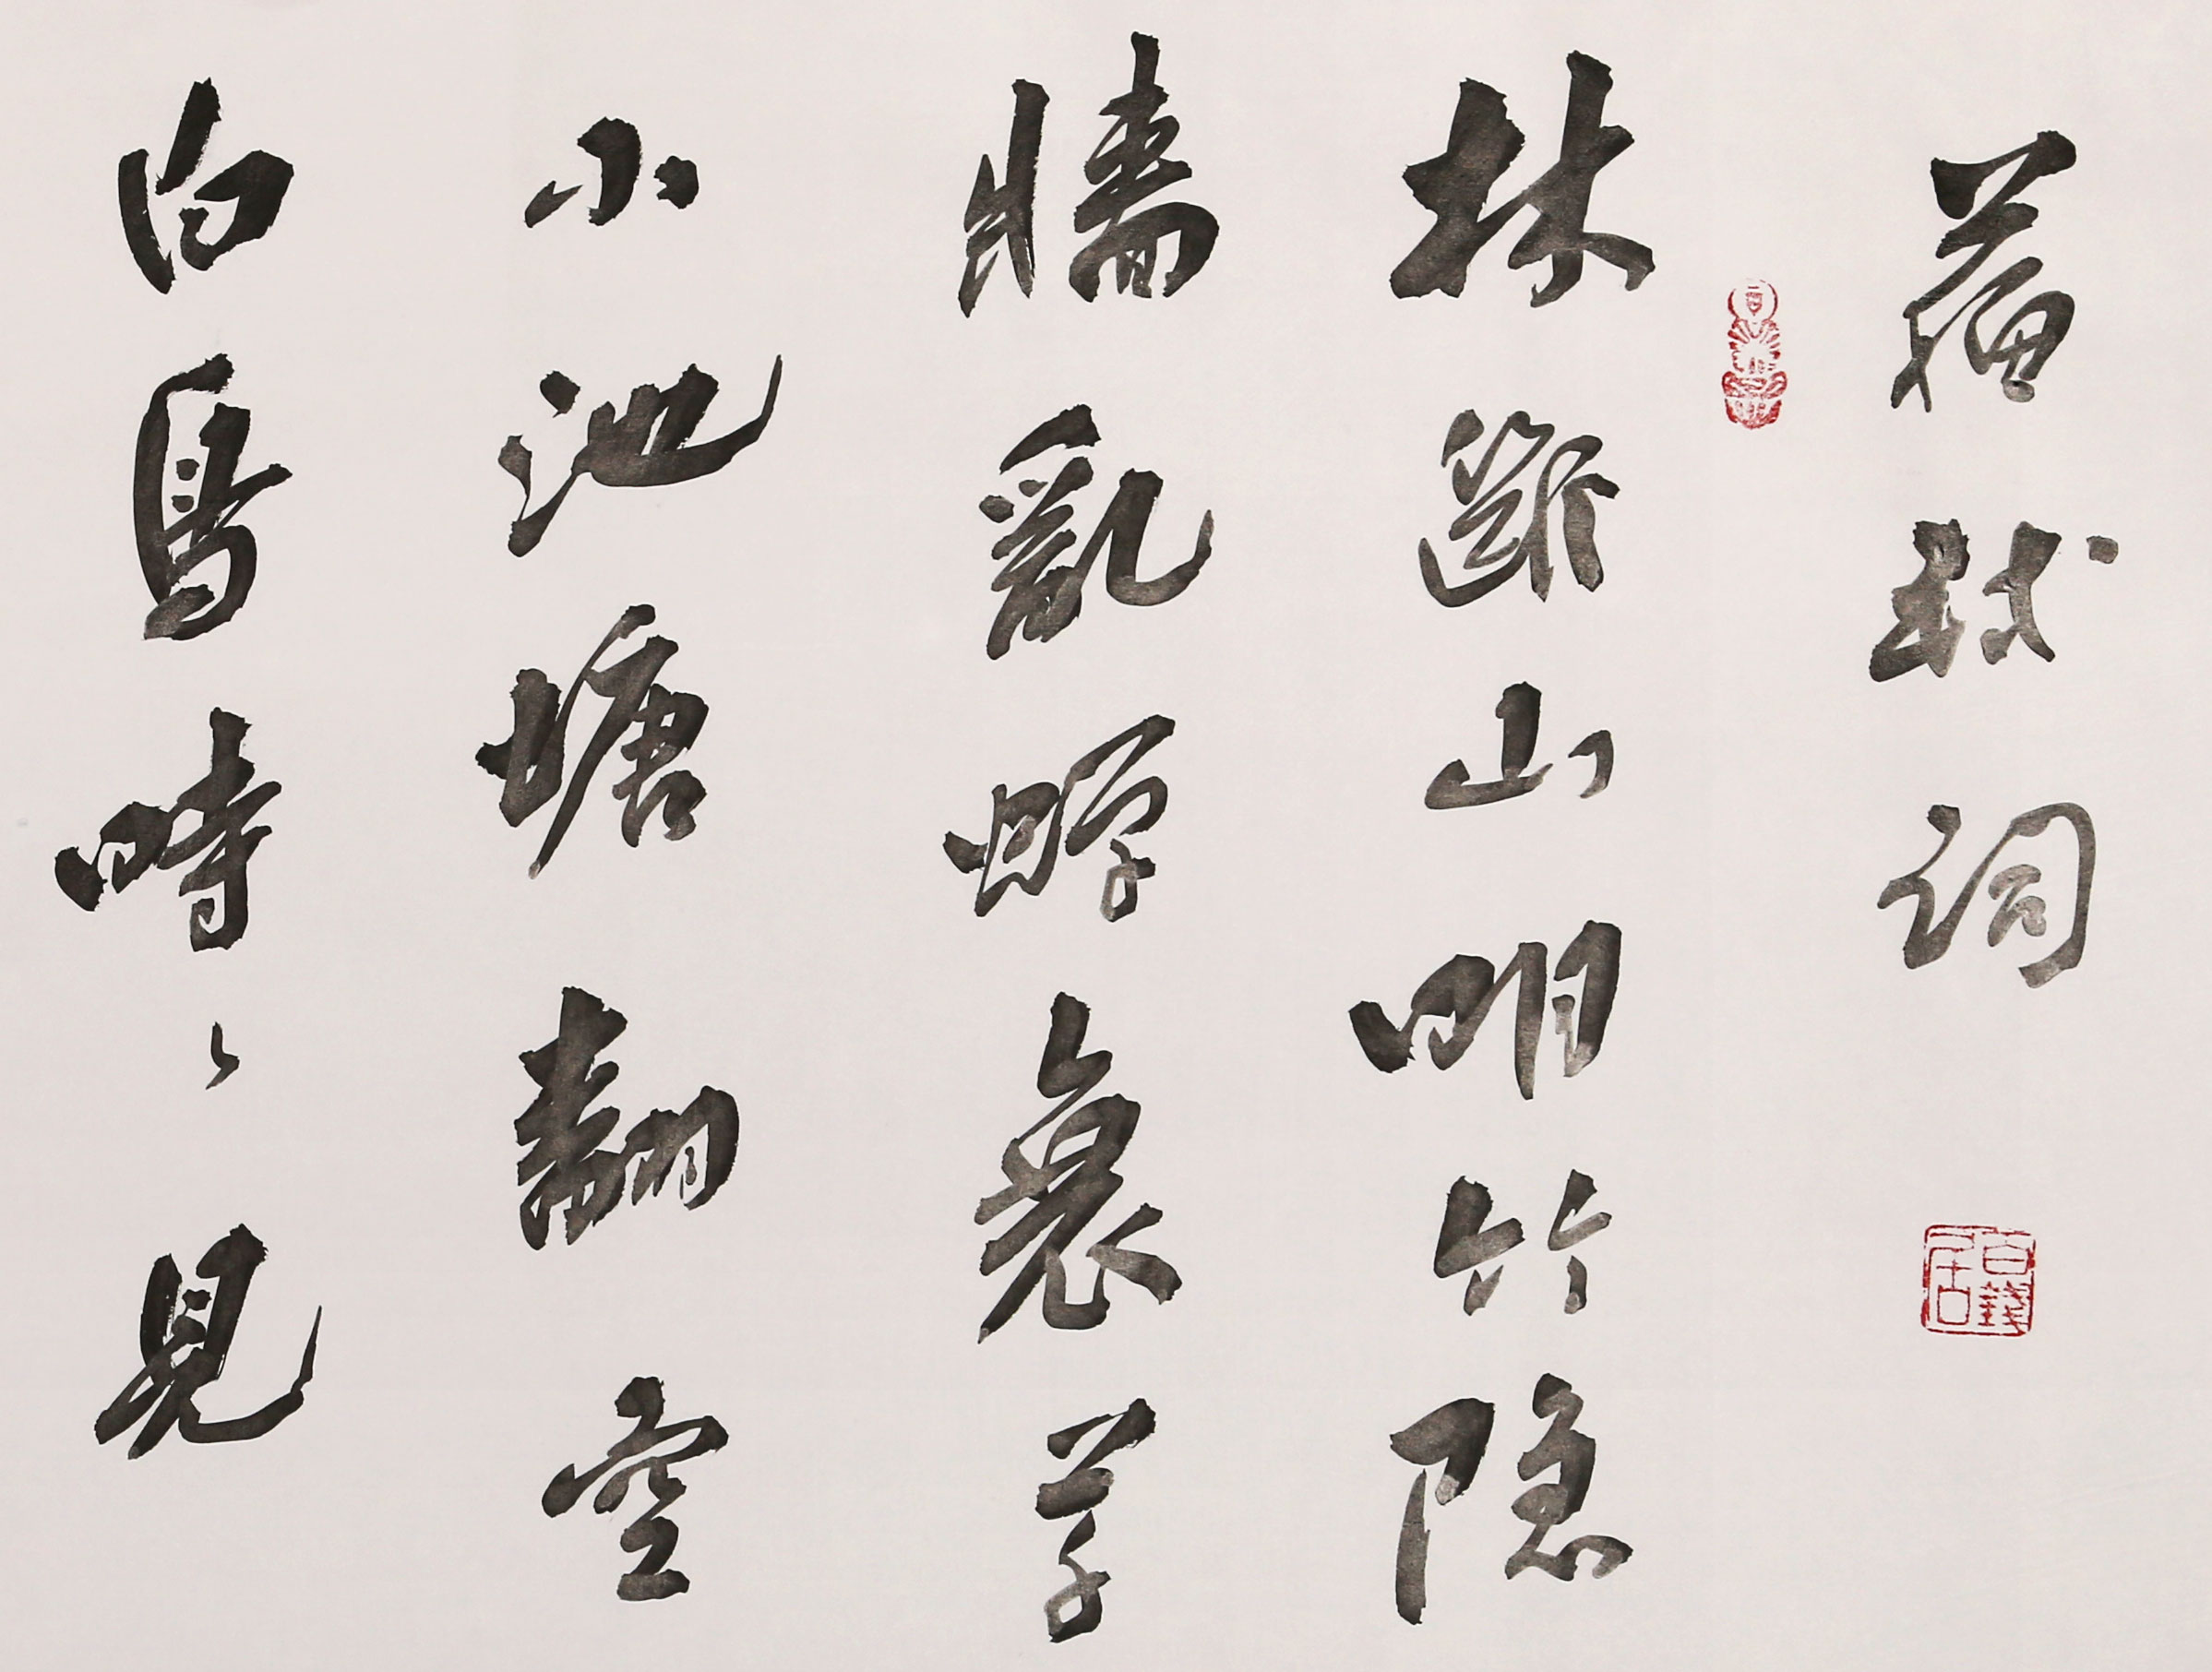 蘓軾詞
林斷山明竹隐
牆亂蟬衰草
小池塘翻空
白鳥時々見
百錢居